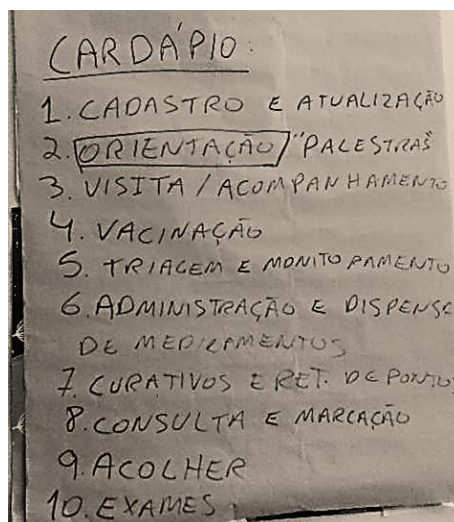 CARDÁPIO:
1. CADASTRO E ATUALIZAÇÃO
2. ORIENTAÇÃO / "PALESTRAS"
3. VISITA / ACOMPANHAMENTO
4. VACINAÇÃO
5. TRIAGEM E MONITORAMENTO
6. ADMINISTRAÇÃO E DISPENSA
DE MEDICAMENTOS
7. CURATIVOS E RET. DE PONTOS
8. CONSULTA E MARCAÇÃO
9. ACOLHER
10. EXAMES